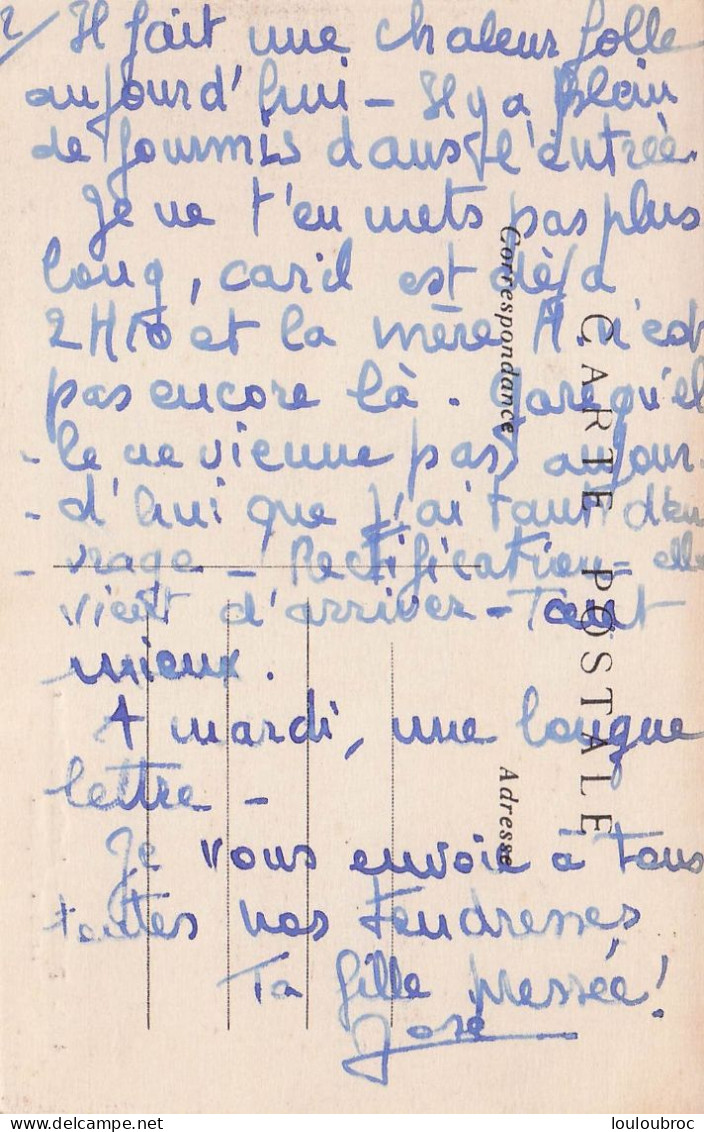 2/ Il fait une chaleur folle
aujourd'hui - Il y a plein
de fourmis dans l'entrée.
Je ne t'en mets pas plus
long, car il est déjà
2H10 et la mère A. n'est
pas encore là. Gare qu'el
- le ne vienne pas aujour-
- d'hui que j'ai tant d'ou
- vrage - Rectification = elle
vient d'arriver - Tant
mieux.
A mardi, une longue
lettre -
Je vous envoie à tous
toutes nos tendresses,
Ta fille pressée!
José
CARTE POSTALE
Correspondance
Adresse
delcampe.net
louloubroc